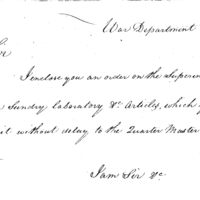 War Department
Sir
I enclose you an order on the Superin
Sundry laboratory &c. Articles, which y
it without delay to the Quarter Master
I am Sir &c